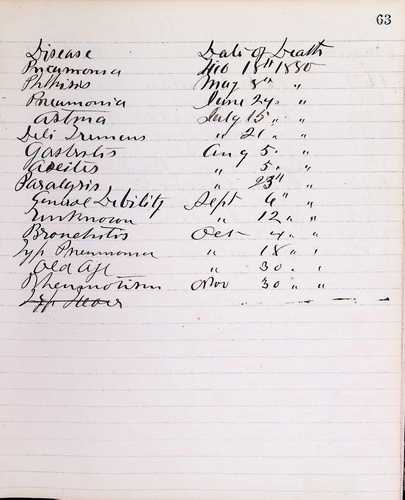 63
Disease Date of Death
Pneumonia 15th 1880
Phthisis May 8th "
Pneumonia June 24 . "
Astma July 15 " "
Deli Tremens " 21 . "
Gastritis Aug 5 . "
" 5 . "
Paralysis " 23rd "
General Debility Sept 6th "
Unknown " 12 " "
Bronchitis Oct 4 " "
Typ Pneumonia " 18 " "
Old Age " 30 . "
Rheumotism Nov 30 " "
Typ Fever